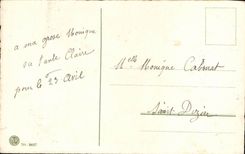 a ma grosse Monique
sa tante Claire
pour le 23 Avril
Melle Monique Cabinat
Saint Dizier